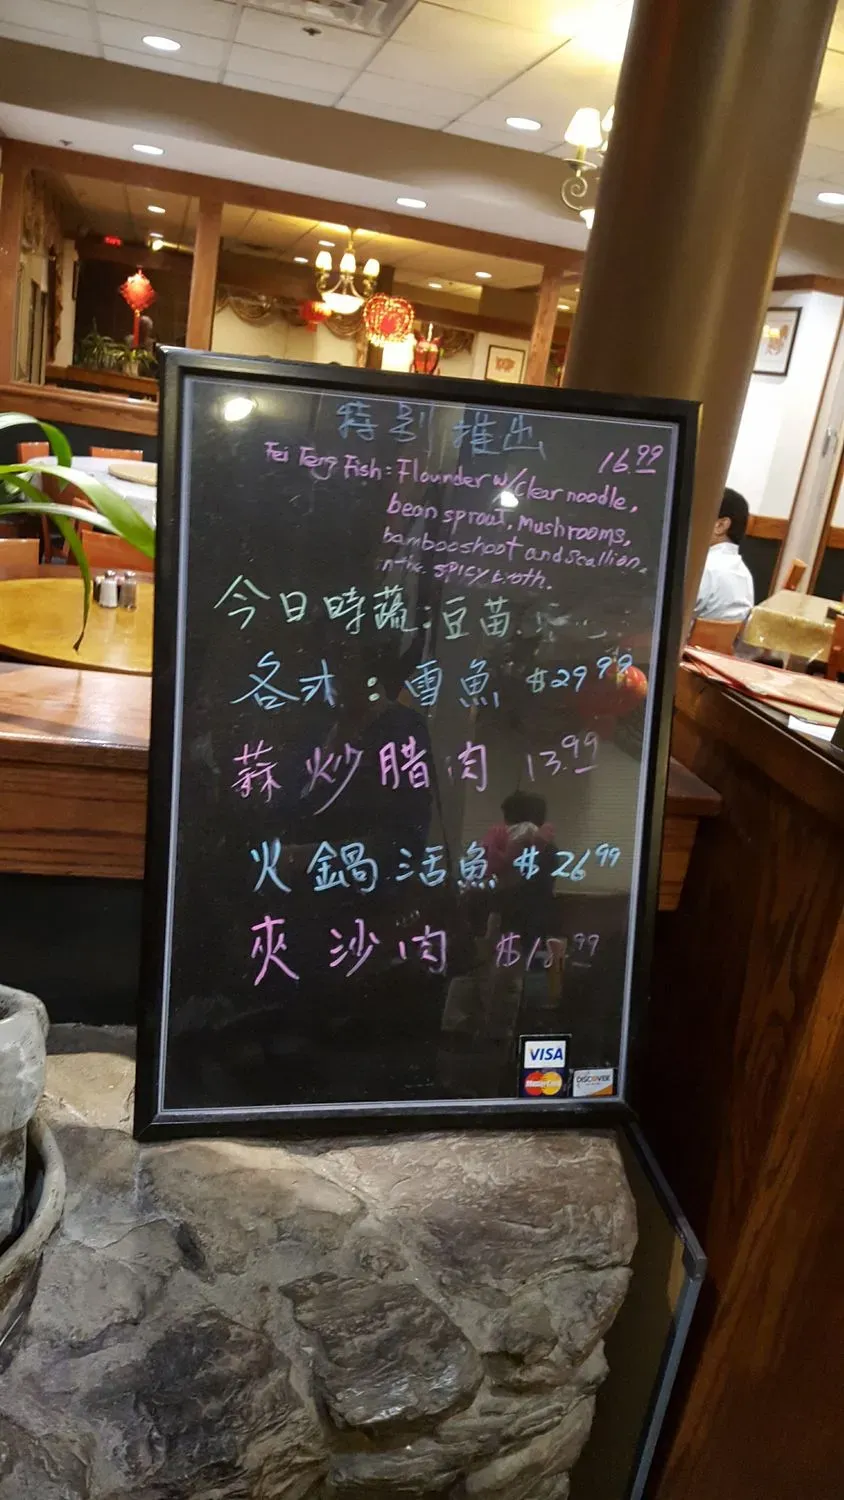 特别推出
Fei Teng Fish: Flounder w/clear noodle, 16.99
bean sprout, Mushrooms,
bamboo shoot and Scallion,
in the spicy broth.
今日時蔬:豆苗
各式:雪魚 $29.99
蒜炒腊肉 13.99
火鍋活魚 $26.99
夾沙肉 $18.99
VISA
MasterCard DISCOVER